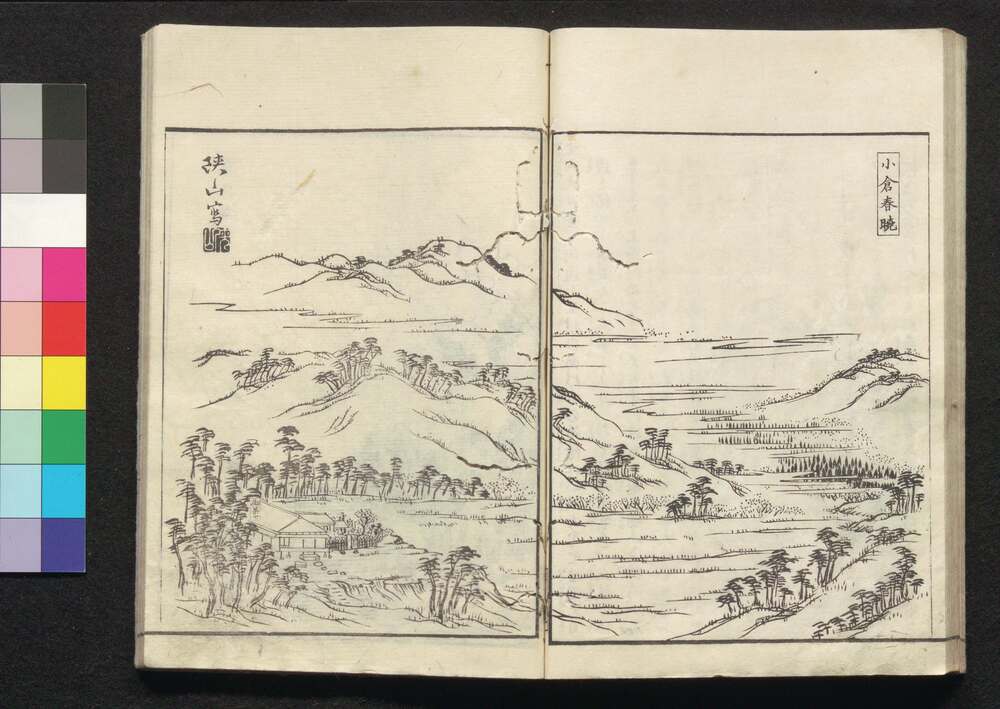 小倉春曉
狭山寫